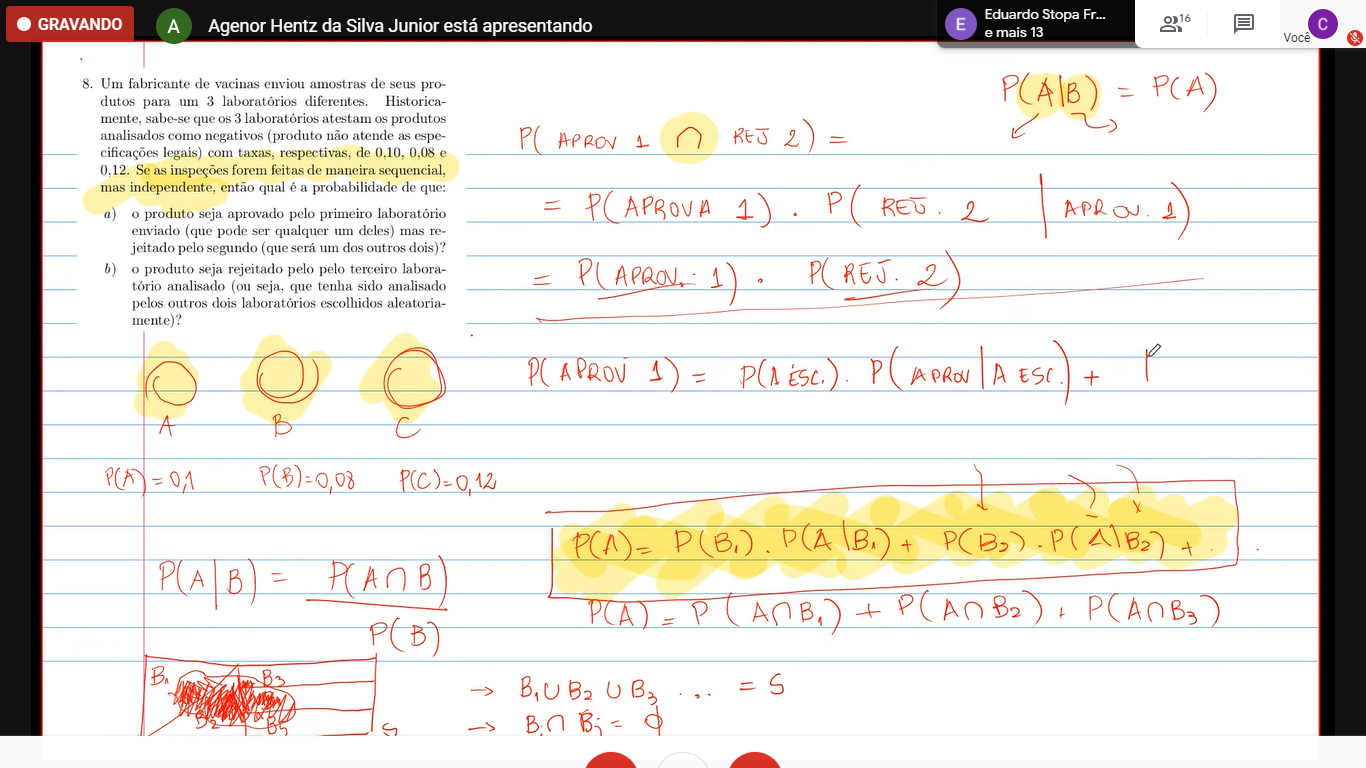 GRAVANDO
A
Agenor Hentz da Silva Junior está apresentando
E
Eduardo Stopa Fr...
e mais 13
16
Você
C
8. Um fabricante de vacinas enviou amostras de seus pro-
dutos para um 3 laboratórios diferentes. Historica-
mente, sabe-se que os 3 laboratórios atestam os produtos
analisados como negativos (produto não atende as espe-
cificações legais) com taxas, respectivas, de 0,10, 0,08 e
0,12. Se as inspeções forem feitas de maneira sequencial,
mas independente, então qual é a probabilidade de que:
a) o produto seja aprovado pelo primeiro laboratório
enviado (que pode ser qualquer um deles) mas re-
jeitado pelo segundo (que será um dos outros dois)?
b) o produto seja rejeitado pelo pelo terceiro labora-
tório analisado (ou seja, que tenha sido analisado
pelos outros dois laboratórios escolhidos aleatoria-
mente)?
A B C
P(A)=0,1 P(B)=0,08 P(C)=0,12
P(A|B) = P(A∩B)
P(B)
B₁ B₃
B₂ B₅
P(A|B) = P(A)
P( APROV 1 ∩ REJ 2) =
= P(APROVA 1) . P( REJ. 2 | APROV. 1)
= P(APROV. 1) . P(REJ. 2)
P(APROV 1) = P(A ESC.) . P(APROV|A ESC.) +
P(A) = P(B₁) . P(A|B₁) + P(B₂) . P(A|B₂) + . .
P(A) = P(A∩B₁) + P(A∩B₂) + P(A∩B₃)
→ B₁∪B₂∪B₃ ... = S
→ Bᵢ∩Bⱼ = ϕ